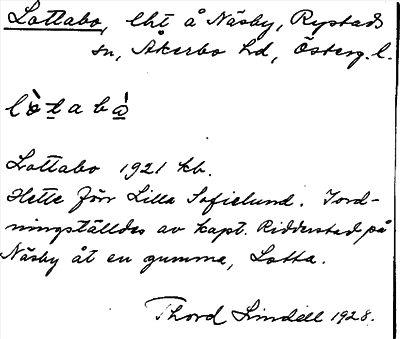 Lottabo, lht å Näsby, Rystads
sn, Åkerbo hd, Österg. l.
lòtabó
Lottabo 1921 kb.
Hette förr Lilla Sofielund. Iord-
ningställdes av kapt. Ridderstad på
Näsby åt en gumma, Lotta.
Thord Lindell 1928.